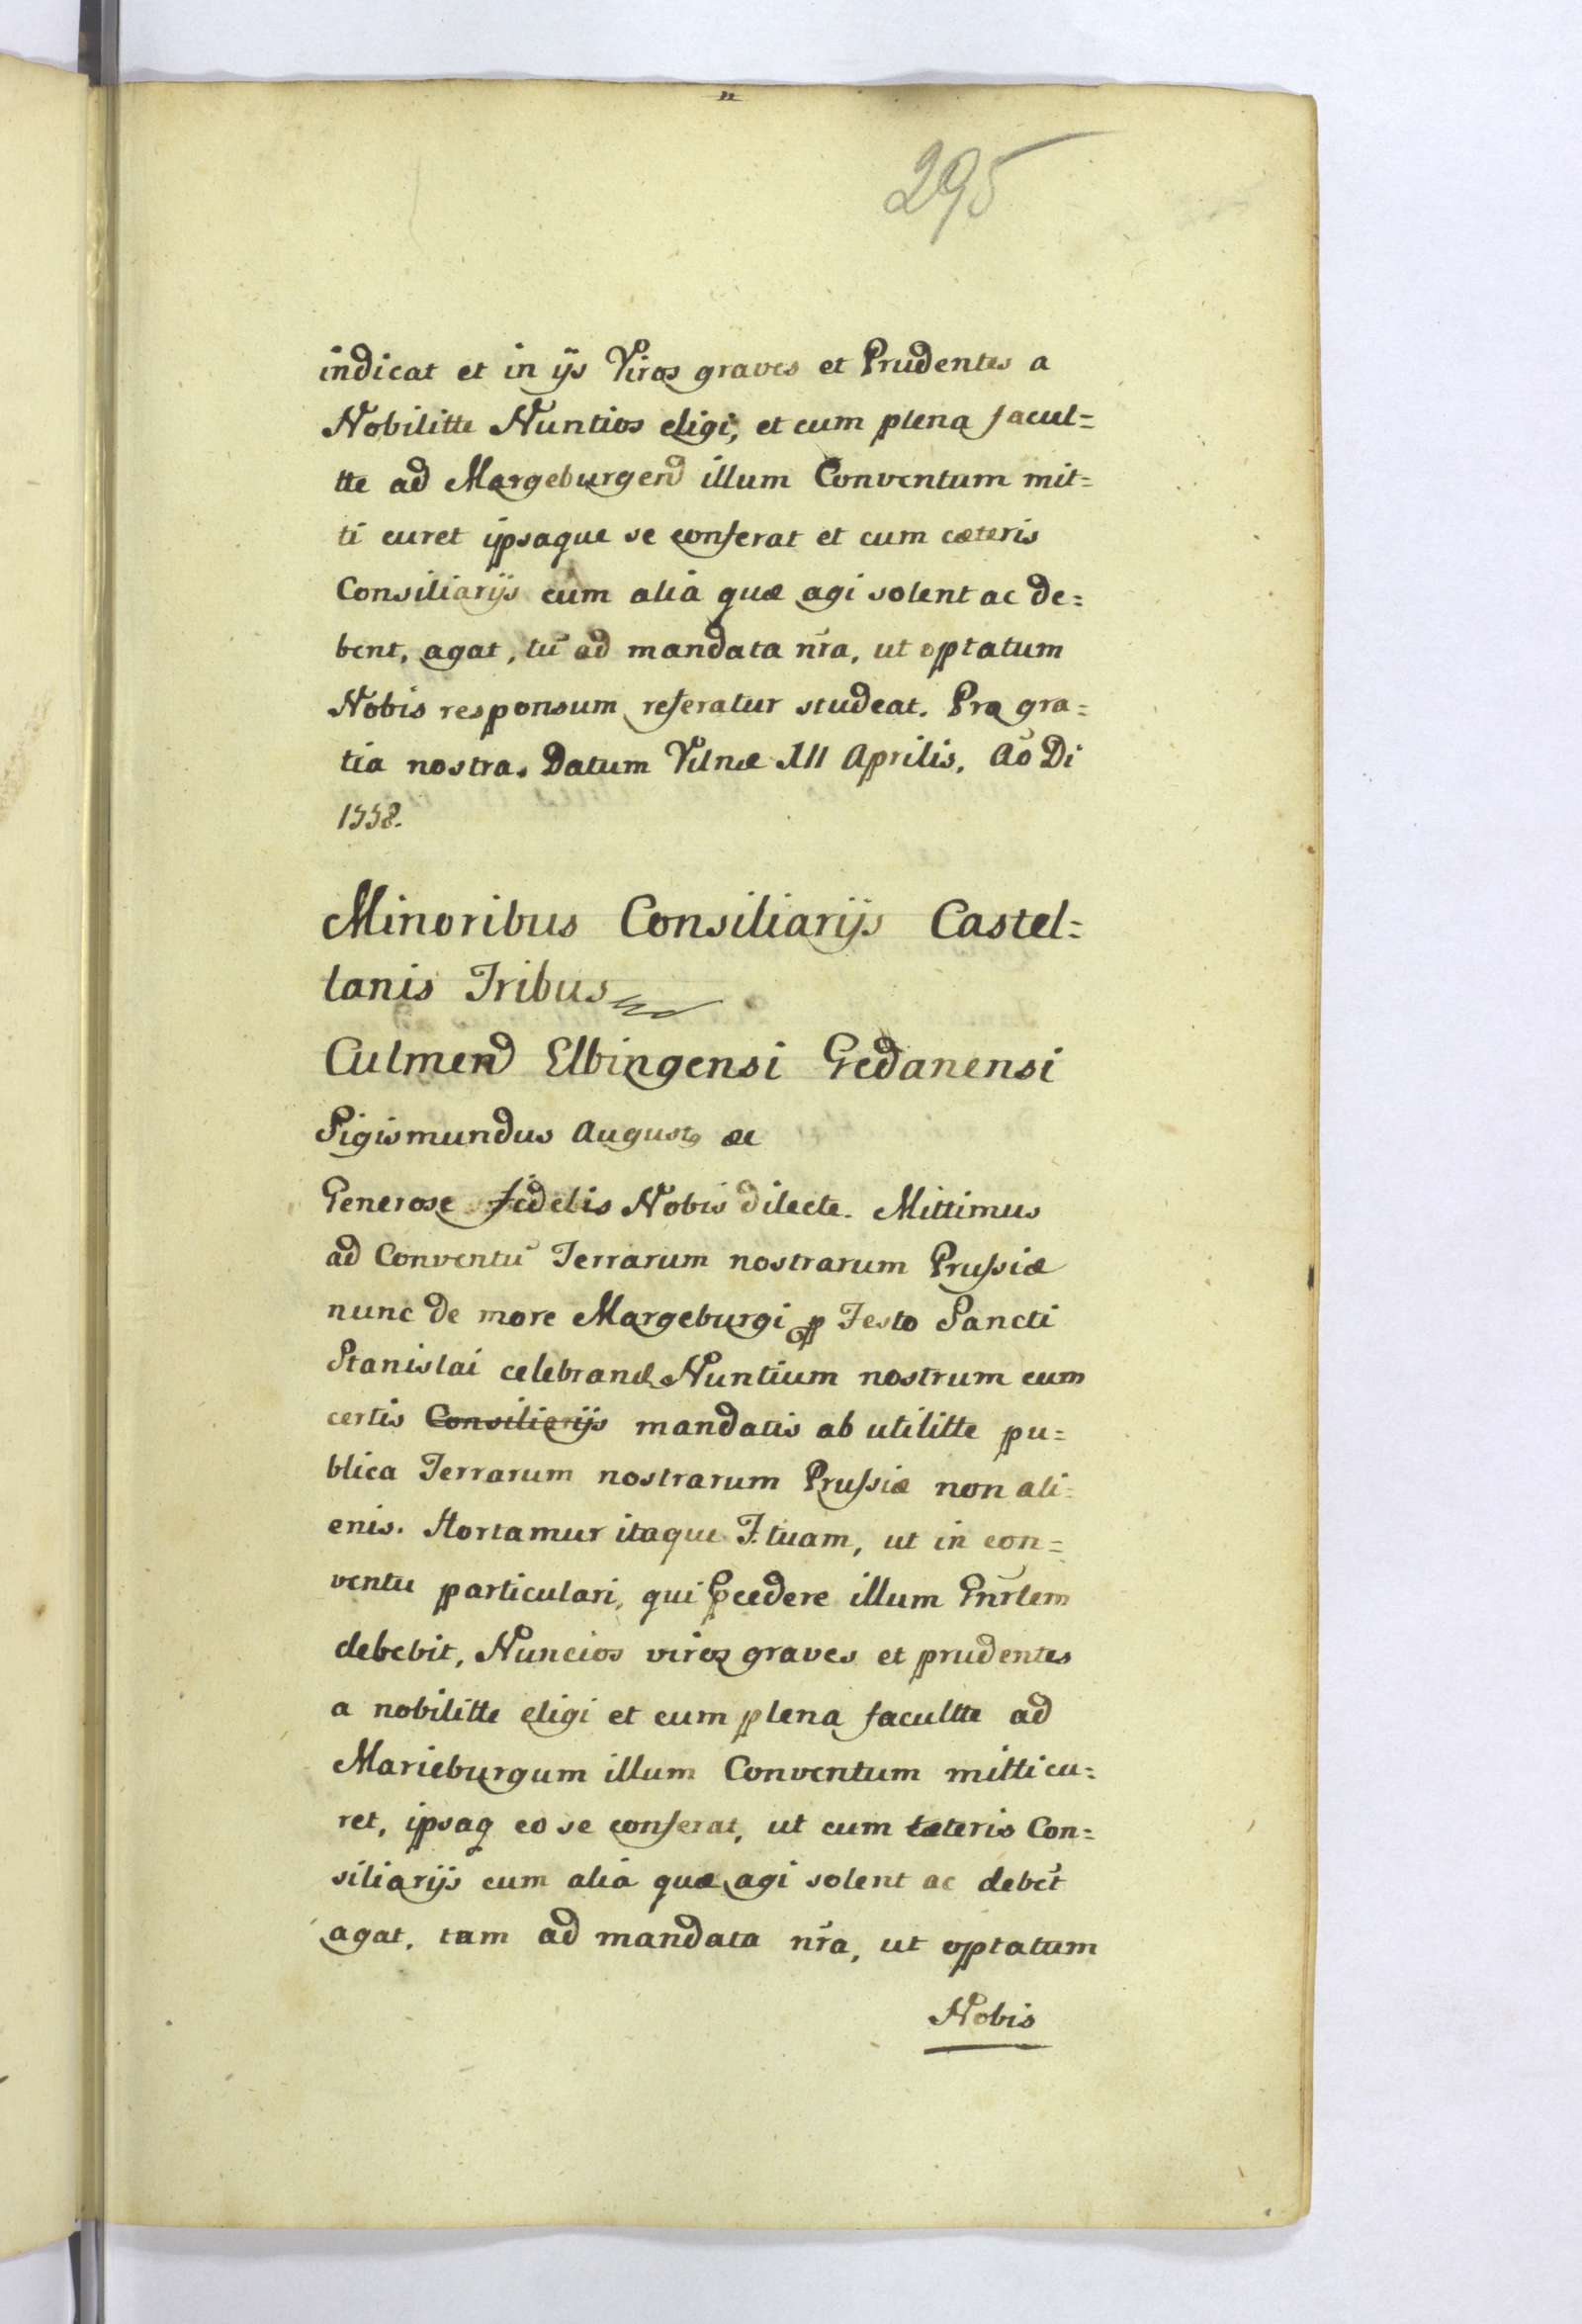 295
indicat et in ijs Viros graves et Prudentes a
Nobilitte Nuntios eligi, et cum plena facul=
tte ad Margeburgen illum Conventum mit=
ti curet ipsaque se conferat et cum cæteris
Consiliarijs cum alia quæ agi solent ac de=
bent, agat, tū ad mandata nr̃a, ut optatum
Nobis responsum referatur studeat. Pro gra=
tia nostra. Datum Vilnæ III Aprilis, Aõ Di
1558.
Minoribus Consiliarijs Castel=
lanis Tribus
Culmen Elbingensi Gedanensi
Sigismundus August9 æc
Generose fidelis Nobis dilecte. Mittimus
ad Conventū Terrarum nostrarum Prussiæ
nunc de more Margeburgi p Festo Sancti
Stanislai celebrand Nuntium nostrum cum
certis Consiliarijs mandatis ab utilitte pu=
blica Terrarum nostrarum Prussiæ non ali=
enis. Hortamur itaque F. tuam, ut in con=
ventu particulari, qui p̱cedere illum Gnr̃lem
debebit, Nuncios viros graves et prudentes
a nobilitte eligi et cum plena facultte ad
Marieburgum illum Conventum mitti cu=
ret, ipsaq eo se conferat, ut cum cæteris Con=
siliarijs cum alia quæ agi solent ac debēt
agat, tam ad mandata nr̃a, ut optatum
Nobis